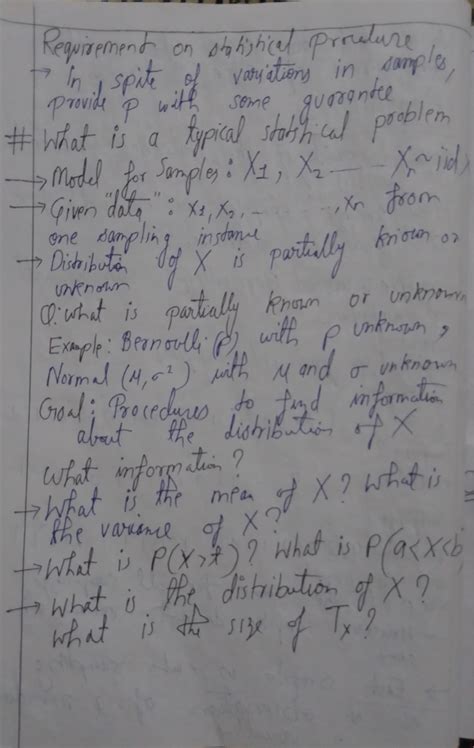 Requirement on statistical procedure
→ In spite of variations in samples,
provide p with some guarantee
# What is a typical statistical problem
→ Model for Samples: X1, X2 ---- Xn ~ iid X
→ Given "data": x1, x2, ... ..., xn from
one sampling instance
→ Distribution of X is partially known or
unknown
Q: what is partially known or unknown
Example: Bernoulli (p) with p unknown,
Normal (μ, σ²) with μ and σ unknown
Goal: Procedures to find information
about the distribution of X
What information?
→ What is the mean of X? What is
the variance of X?
→ What is P(X>t)? What is P(a<X<b
→ What is the distribution of X?
What is the size of Tx?